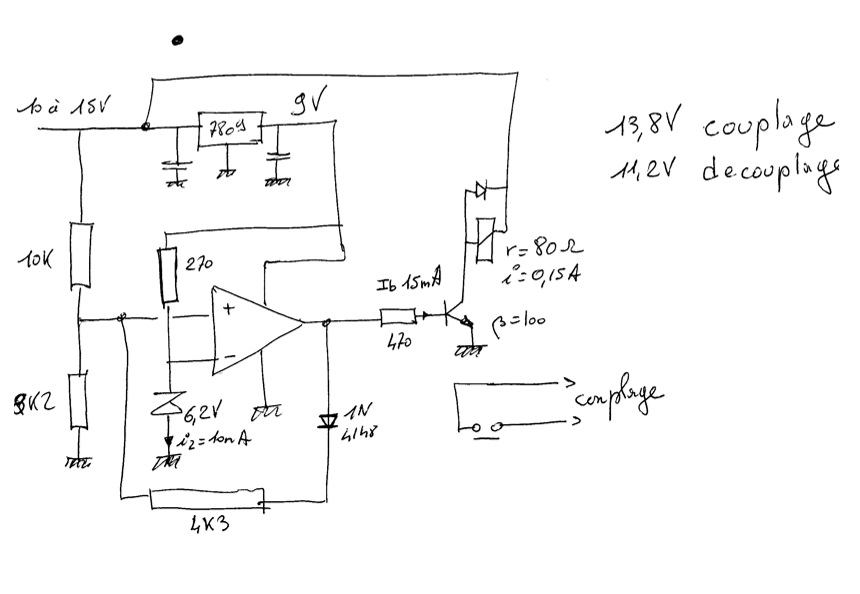 10 à 15V
7809
9V
13,8V couplage
11,2V decouplage
10K
270
+
-
r=80Ω
i=0,15A
Ib 15mA
β=100
470
8K2
6,2V
iz=10mA
1N
4148
couplage
4K3